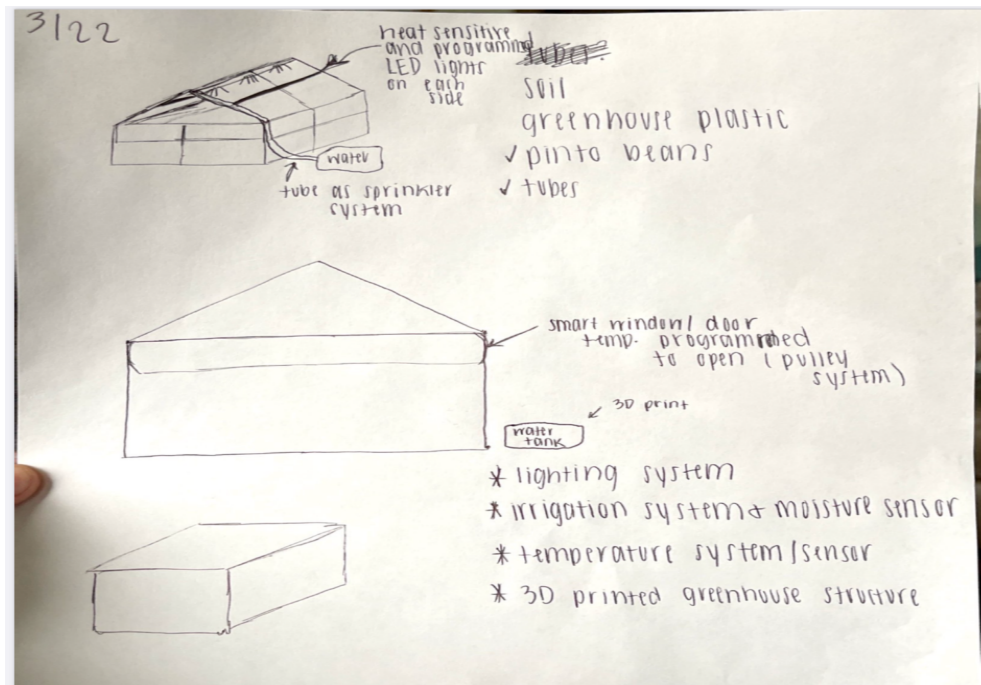 3/22
heat sensitive
and programmed
LED lights
on each
side
soil
greenhouse plastic
✓ pinto beans
✓ tubes
water
tube as sprinkler
system
smart window/ door
temp. programmed
to open (pulley
system)
3D print
water
tank
* lighting system
* irrigation system & moisture sensor
* temperature system/sensor
* 3D printed greenhouse structure